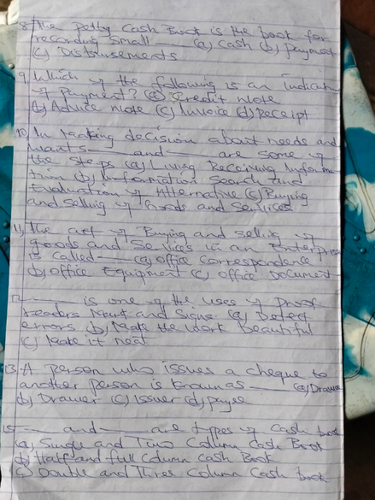 8. The Petty Cash Book is the book for
recording small ____ (a) Cash (b) payment
(c) Disbursements
9. Which of the following is an indication
of Payment? (a) Credit Note
(b) Advice note (c) Invoice (d) Receipt
10. In making decision about needs and
wants ____ and ____ are some of
the Steps (a) Receiving Information
(b) Information Search and
Evaluation of Alternative (c) Buying
and Selling of Goods and Services
11. The act of Buying and Selling of
goods and Services in an Enterprise
is called ____ (a) office Correspondence
(b) office Equipment (c) office Document
12. ____ is one of the uses of Proof
readers Mark and Signs (a) Detect
errors (b) Make the work beautiful
(c) Make it neat
13. A person who issues a cheque to
another person is known as ____ (a) Drawee
(b) Drawer (c) Issuer (d) payee
15. ____ and ____ are types of Cash book
(a) Single and Two Column Cash Book
(b) Half and full Column Cash Book
(c) Double and Three Column Cash book